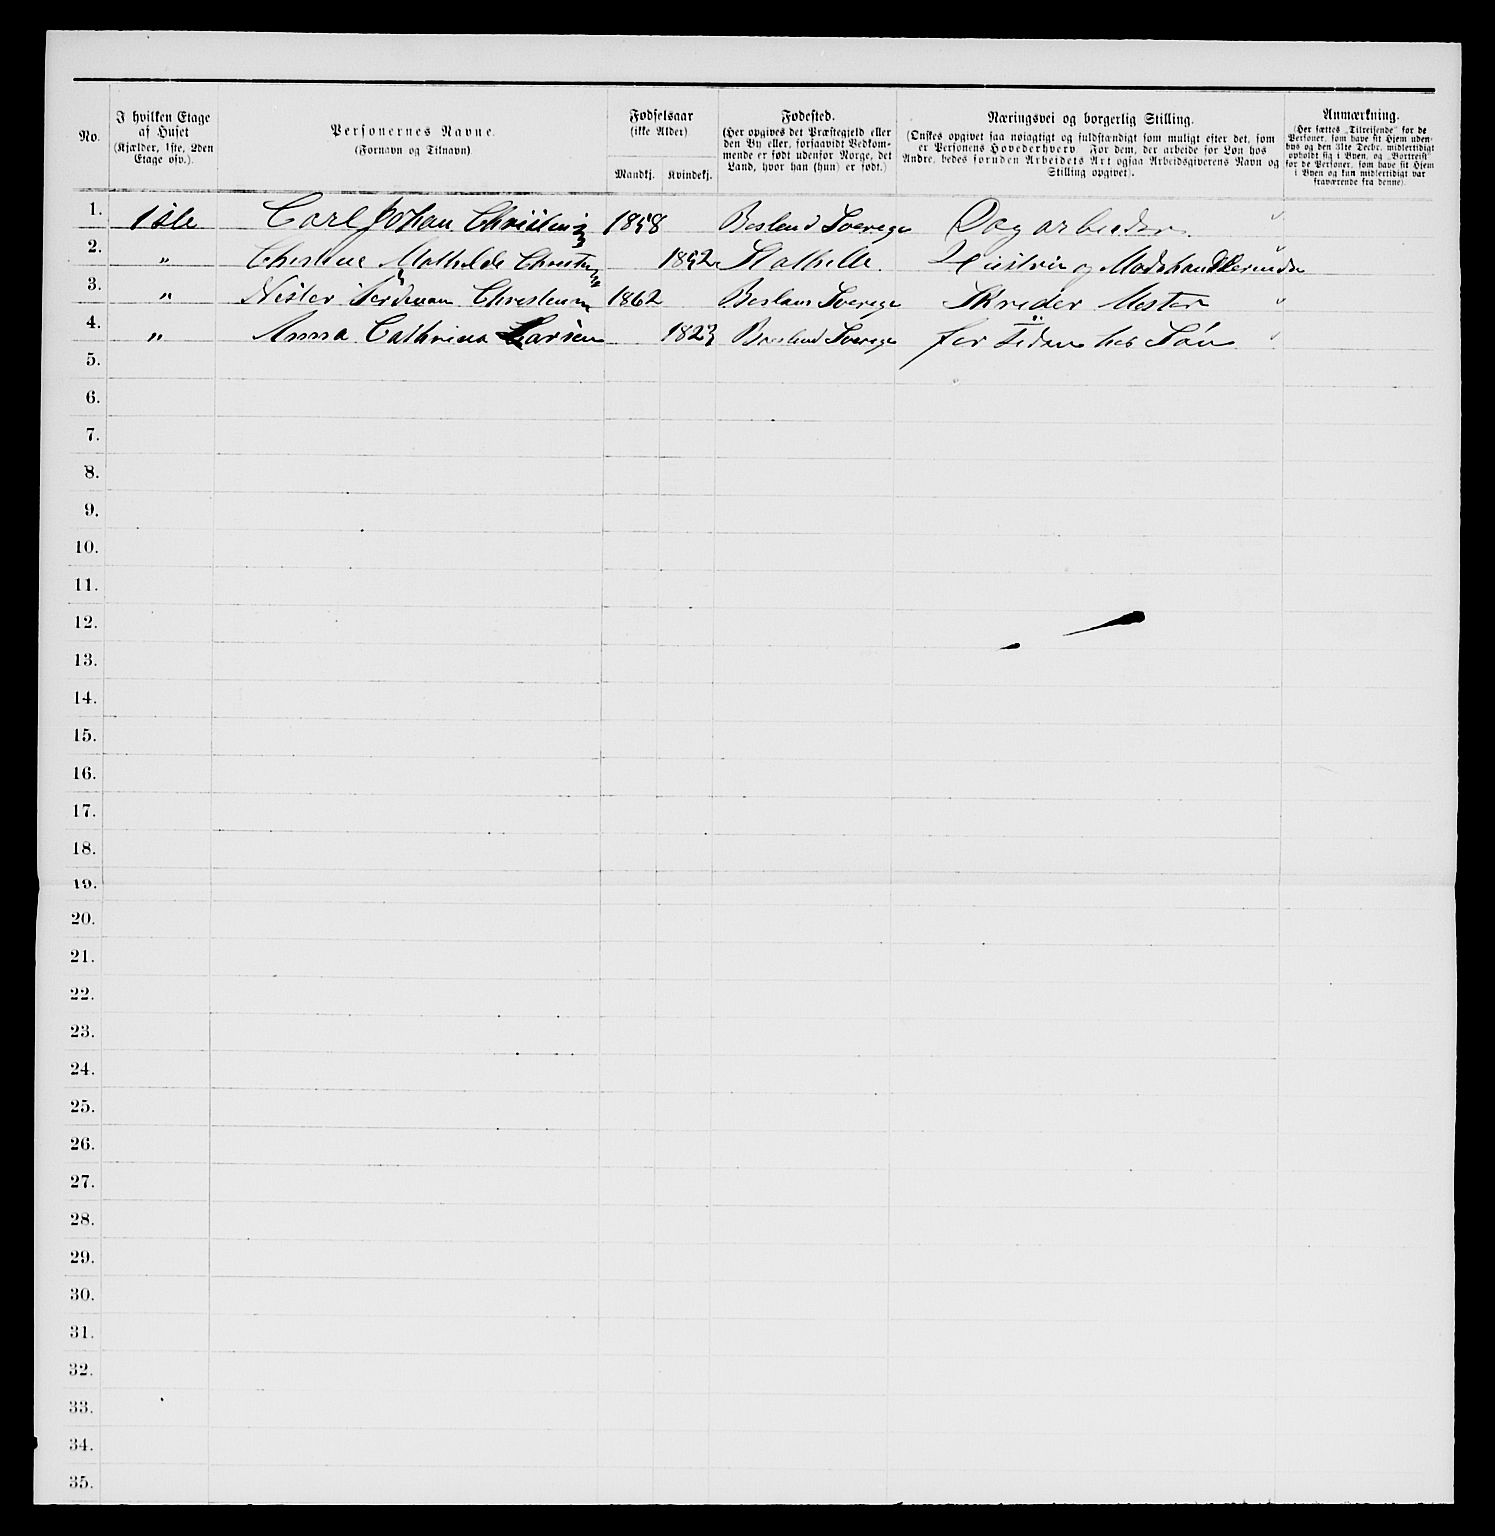 No.
I hvilken Etage
af Huset
(Kjælder, 1ste, 2den
Etage osv.).
Personernes Navne.
(Fornavn og Tilnavn)
Fødselsaar
(ikke Alder)
Mandkj. Kvindekj.
Fødested.
(Her opgives det Præstegjeld eller
den By eller, forsaavidt Vedkom-
mende er født udenfor Norge, det
Land, hvor han (hun) er født.)
Næringsvei og borgerlig Stilling.
(Ønskes opgivet saa nøiagtigt og fuldstændigt som muligt efter det, som
er Personens Hovederhverv. For dem, der arbeide for Løn hos
Andre, bedes foruden Arbeidets Art ogsaa Arbeidsgiverens Navn og
Stilling opgivet).
Anmærkning.
(Her sættes „Tilreisende“ for de
Personer, som have sit Hjem uden-
bys og den 31te Decbr. midlertidigt
opholdt sig i Byen, og „Bortreist“
for de Personer, som have sit Hjem
i Byen og kun midlertidigt var
fraværende fra denne).
1. 1ste Carl Johan 1858 Sverige Dagarbeider "
2. " Mathilde 1852 Stathelle Hustrue og "
3. " 1862 Sverige Skreder Mester "
4. " Anna Cathrina Larsen 1823 Sverige for Tiden hos Sön "
5.
6.
7.
8.
9.
10.
11.
12.
13.
14.
15.
16.
17.
18.
19.
20.
21.
22.
23.
24.
25.
26.
27.
28.
29.
30.
31.
32.
33.
34.
35.